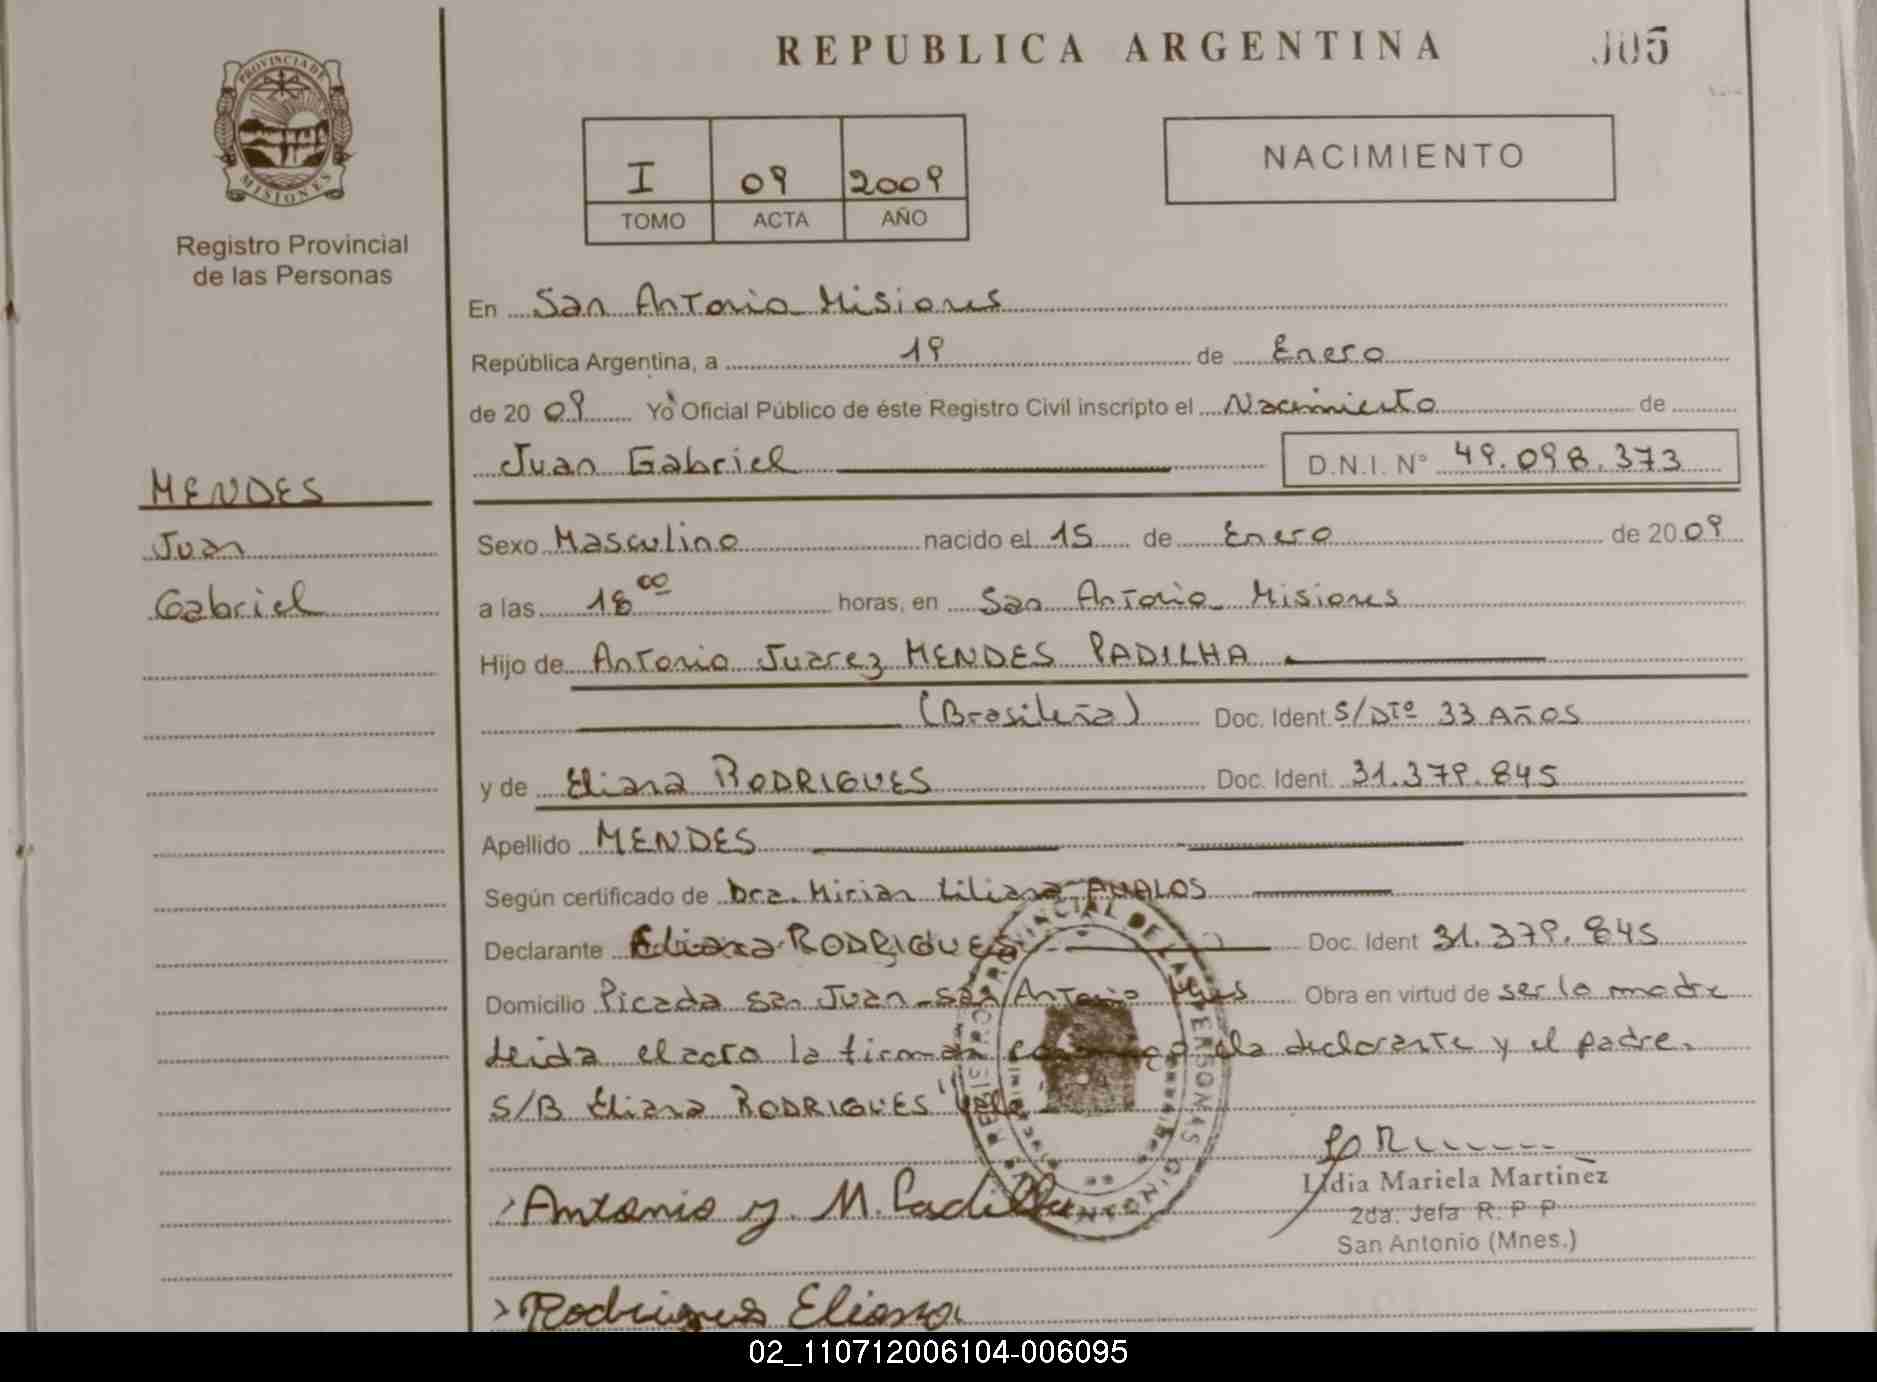 REPUBLICA ARGENTINA
PROVINCIA DE
MISIONES
Registro Provincial
de las Personas
I 09 2009
TOMO ACTA AÑO
NACIMIENTO
En San Antonio Misiones
República Argentina, a 19 de Enero
de 20 09 Yo Oficial Público de éste Registro Civil inscripto el Nacimiento de
Juan Gabriel D.N.I. N° 49.098.373
MENDES
Juan
Gabriel
Sexo Masculino nacido el 15 de Enero de 20 09
a las 18 00 horas, en San Antonio Misiones
Hijo de Antonio Juarez MENDES PADILHA
(Brasileña) Doc. Ident. S/Dto 33 Años
y de Eliana RODRIGUES Doc. Ident. 31.379.845
Apellido MENDES
Según certificado de Dra. Mirian Liliana
Declarante Eliana RODRIGUES Doc. Ident 31.379.845
Domicilio Picada San Juan - San Antonio Obra en virtud de ser la madre
Leida el acto la firman la declarante y el padre.
S/B Eliana RODRIGUES Vale
Lidia Mariela Martinez
2da. Jefa R. P P
San Antonio (Mnes.)
Antonio J. M. Padilha
Rodrigues Eliana
02_110712006104-006095